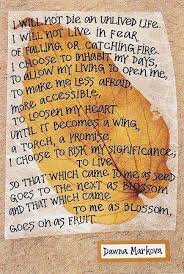 I WILL NOT DIE AN UNLIVED LIFE.
I WILL NOT LIVE IN FEAR
OF FALLING OR CATCHING FIRE.
I CHOOSE TO INHABIT MY DAYS,
TO ALLOW MY LIVING TO OPEN ME,
TO MAKE ME LESS AFRAID,
MORE ACCESSIBLE,
TO LOOSEN MY HEART
UNTIL IT BECOMES A WING,
A TORCH, A PROMISE.
I CHOOSE TO RISK MY SIGNIFICANCE;
TO LIVE
SO THAT WHICH CAME TO ME AS SEED
GOES TO THE NEXT AS BLOSSOM
AND THAT WHICH CAME
TO ME AS BLOSSOM,
GOES ON AS FRUIT.
Dawna Markova